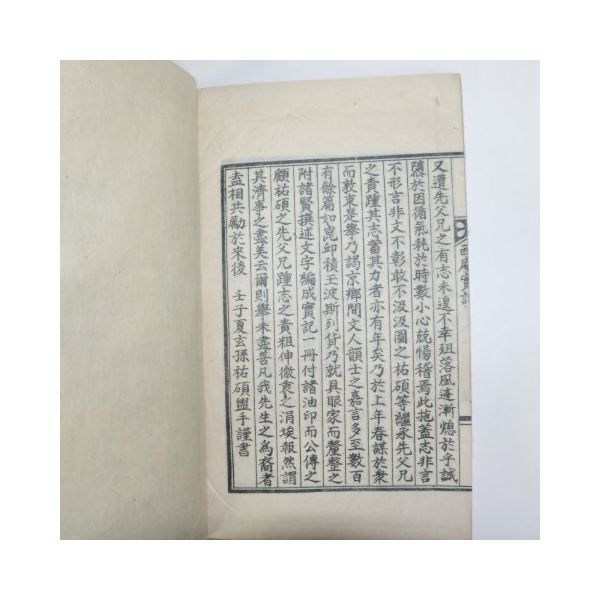 又遭先父兄之有志未遑不幸殂落風迹漸熄於乎誠
隳於因循氣耗於時數小心兢惕稽焉此拖蓋志非言
不形言非文不彰敢不汲汲圖之祐碩等繼承先父兄
之責踵其志蓄其力者亦有年矣乃於上年春謀於衆
而敦束是擧乃謁京鄉間文人韻士之嘉言多至數百
有餘篇如崑邱積玉波斯列貨乃就具眼家而釐整之
附諸賢撰述文字編成實記一冊付諸油印而公傳之
顧祐碩之先父兄踵志之責粗伸微衷之涓埃報然謂
其濟事之盡美云爾則擧未盡善凡我先生之爲裔者
盍相共勵於來後 壬子夏玄孫祐碩盥手謹書
實記